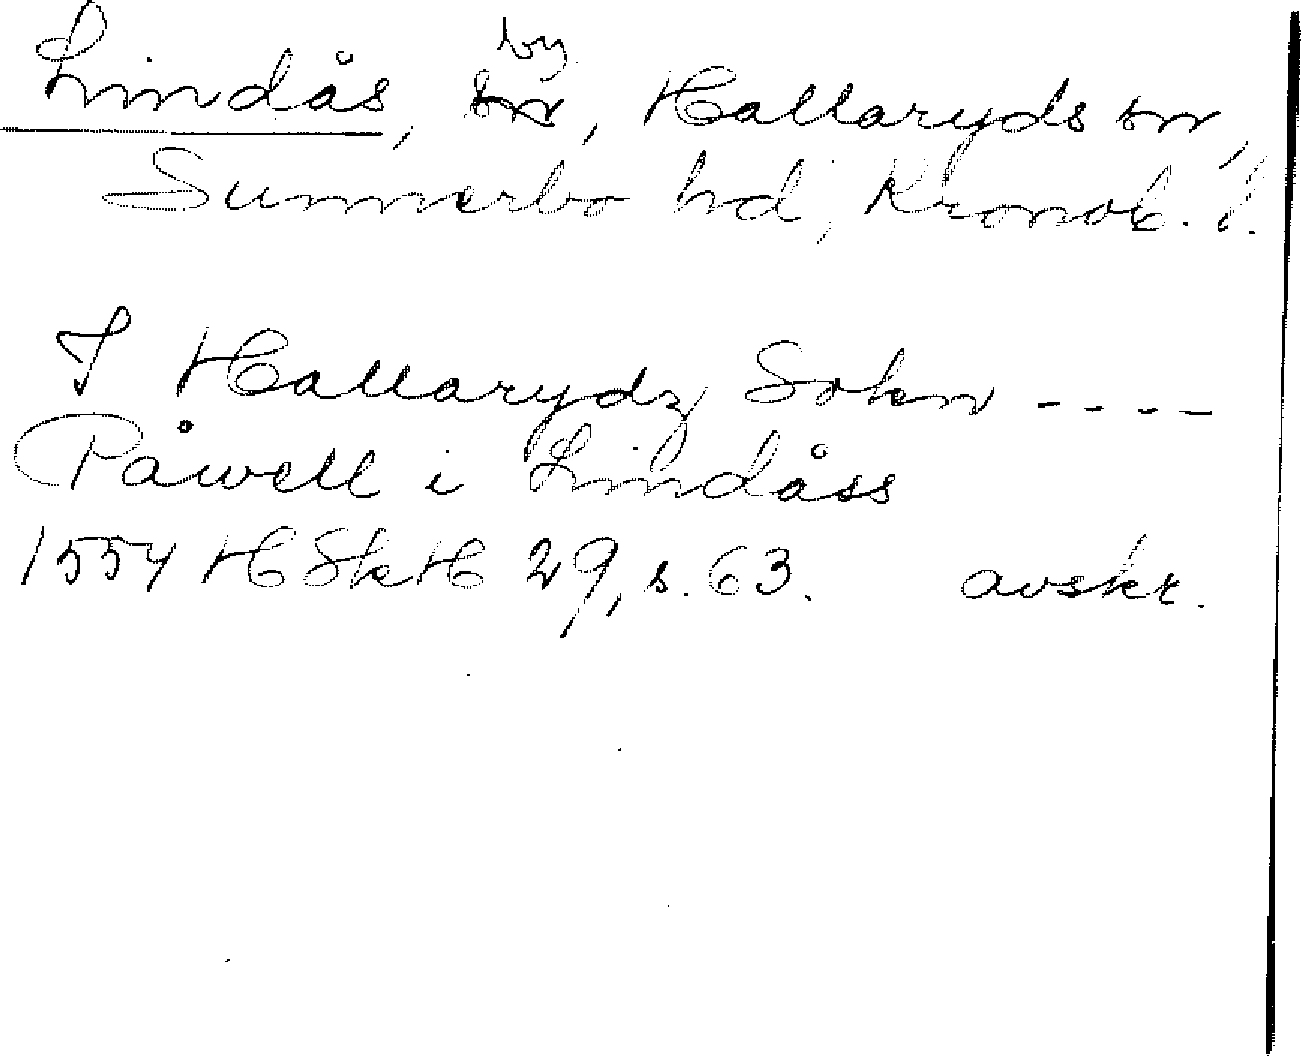 Lindås, by, Hallaryds sn,
Sunnerbo hd, Kronob. l.
I Hallarydz Sokn ----
Påwell i Lindåss
1554 HSkH 29, s. 63. avskr.